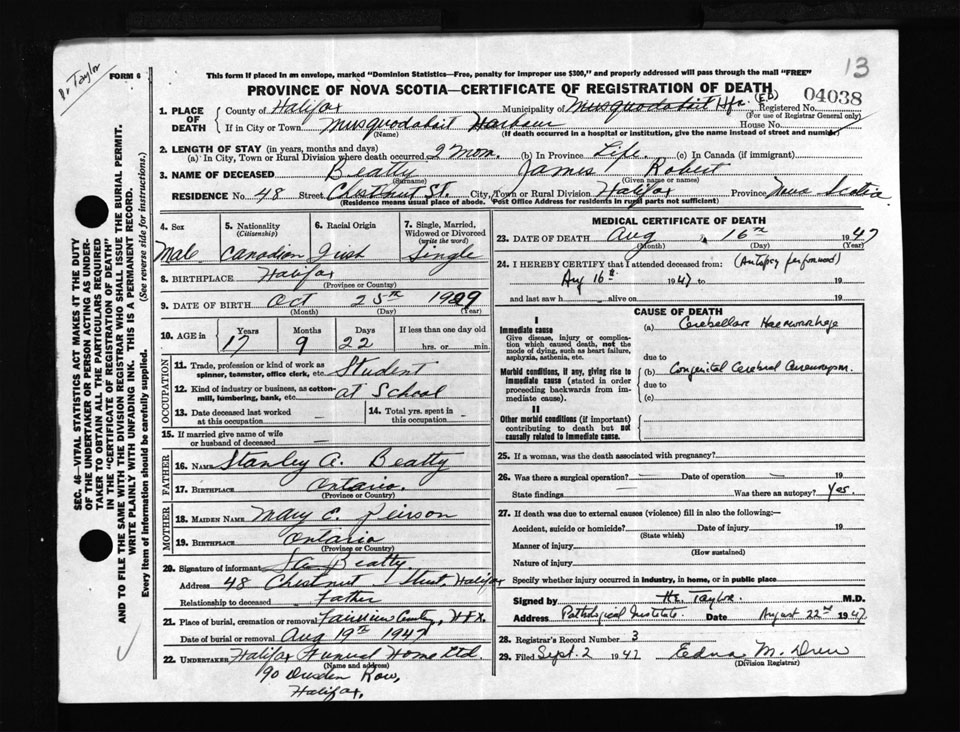 Dr Taylor
FORM 6
This form if placed in an envelope, marked "Dominion Statistics—Free, penalty for improper use $300," and properly addressed will pass through the mail "FREE"
13
PROVINCE OF NOVA SCOTIA—CERTIFICATE OF REGISTRATION OF DEATH
04038
1. PLACE OF DEATH County of Halifax Municipality of Musquodoboit Hfx. (E.D) Registered No.
(For use of Registrar General only)
If in City or Town Musquodoboit Harbour House No.
(Name) (If death occurred in a hospital or institution, give the name instead of street and number)
2. LENGTH OF STAY (in years, months and days)
(a) In City, Town or Rural Division where death occurred 2 mon. (b) In Province Life. (c) In Canada (if immigrant)
3. NAME OF DECEASED Beatty James Robert
(Surname) (Given name or names)
RESIDENCE No. 48 Street Chestnut St. City, Town or Rural Division Halifax Province Nova Scotia
(Residence means usual place of abode. Post Office Address for residents in rural parts not sufficient)
4. Sex Male
5. Nationality (Citizenship) Canadian
6. Racial Origin Irish
7. Single, Married, Widowed or Divorced (write the word) Single
8. BIRTHPLACE Halifax
(Province or Country)
9. DATE OF BIRTH Oct 25th 1929
(Month) (Day) (Year)
10. AGE in Years Months Days If less than one day old
17 9 22 hrs. or min.
OCCUPATION
11. Trade, profession or kind of work as spinner, teamster, office clerk, etc. Student
12. Kind of industry or business, as cotton-mill, lumbering, bank, etc. at School
13. Date deceased last worked at this occupation —
14. Total yrs. spent in this occupation —
15. If married give name of wife or husband of deceased —
FATHER
16. NAME Stanley A. Beatty
17. BIRTHPLACE Ontario.
(Province or Country)
MOTHER
18. MAIDEN NAME Mary C. Peirson
19. BIRTHPLACE Ontario
(Province or Country)
20. Signature of informant Stan Beatty.
Address 48 Chestnut Street, Halifax
Relationship to deceased Father
21. Place of burial, cremation or removal Fairview Cemetery, Hfx.
Date of burial or removal Aug 19th 1947
22. UNDERTAKER Halifax Funeral Home Ltd.
(Name and address)
90 Dresden Row,
Halifax,
MEDICAL CERTIFICATE OF DEATH
23. DATE OF DEATH Aug 16th 1947
(Month) (Day) (Year)
24. I HEREBY CERTIFY that I attended deceased from: (Autopsy performed)
Aug 16th 1947 to 19
and last saw h alive on 19
CAUSE OF DEATH
I
Immediate cause
Give disease, injury or complication which caused death, not the mode of dying, such as heart failure, asphyxia, asthenia, etc.
(a) Cerebellar Haemorrhage
due to
Morbid conditions, if any, giving rise to immediate cause (stated in order proceeding backwards from immediate cause).
(b) Congenital Cerebral Aneurysm.
due to
(c)
II
Other morbid conditions (if important) contributing to death but not causally related to immediate cause.
25. If a woman, was the death associated with pregnancy?
26. Was there a surgical operation? — Date of operation — 19
State findings Was there an autopsy? Yes.
27. If death was due to external causes (violence) fill in also the following:—
Accident, suicide or homicide? Date of injury 19
(State which)
Manner of injury
(How sustained)
Nature of injury
Specify whether injury occurred in industry, in home, or in public place
Signed by H.E. Taylor M.D.
Address Pathological Institute. Date August 22nd 1947.
28. Registrar's Record Number 3
29. Filed Sept. 2 1947 Edna M. Drew
(Division Registrar)
SEC. 46—VITAL STATISTICS ACT MAKES IT THE DUTY
OF THE UNDERTAKER OR PERSON ACTING AS UNDER-
TAKER TO OBTAIN ALL THE PARTICULARS REQUIRED
IN THE "CERTIFICATE OF REGISTRATION OF DEATH"
AND TO FILE THE SAME WITH THE DIVISION REGISTRAR WHO SHALL ISSUE THE BURIAL PERMIT.
WRITE PLAINLY WITH UNFADING INK. THIS IS A PERMANENT RECORD.
Every item of information should be carefully supplied. (See reverse side for instructions.)